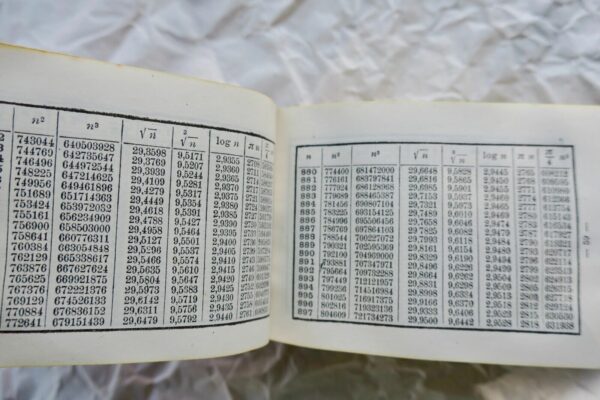 n² n³ √n ³√n log n π n
743044 640503928 29,3598 9,5171 2,9355 2708
744769 642735647 29,3769 9,5207 2,9360 2711
746496 644972544 29,3939 9,5244 2,9365 2714
748225 647214625 29,4109 9,5281 2,9370 2717
749956 649461896 29,4279 9,5317 2,9375 2721
751689 651714363 29,4449 9,5354 2,9380 2724
753424 653972032 29,4618 9,5391 2,9385 2727
755161 656234909 29,4788 9,5427 2,9390 2730
756900 658503000 29,4958 9,5464 2,9395 2733
758641 660776311 29,5127 9,5501 2,9400 2736
760384 663054848 29,5296 9,5537 2,9405 2739
762129 665338617 29,5466 9,5574 2,9410 2743
763876 667627624 29,5635 9,5610 2,9415 2746
765625 669921875 29,5804 9,5647 2,9420 2749
767376 672221376 29,5973 9,5683 2,9425 2752
769129 674526133 29,6142 9,5719 2,9430 2755
770884 676836152 29,6311 9,5756 2,9435 2758
772641 679151439 29,6479 9,5792 2,9440 2761
n n² n³ √n ³√n log n π n π/4 n²
880 774400 681472000 29,6648 9,5828 2,9445 2765 608212
881 776161 683797841 29,6816 9,5865 2,9450 2768 609595
882 777924 686128968 29,6985 9,5901 2,9455 2771 610980
883 779689 688465387 29,7153 9,5937 2,9460 2774 612366
884 781456 690807104 29,7321 9,5973 2,9465 2777 613754
885 783225 693154125 29,7489 9,6010 2,9469 2780 615143
886 784996 695506456 29,7658 9,6046 2,9474 2783 616534
887 786769 697864103 29,7825 9,6082 2,9479 2787 617927
888 788544 700227072 29,7993 9,6118 2,9484 2790 619321
889 790321 702595369 29,8161 9,6154 2,9489 2793 620717
890 792100 704969000 29,8329 9,6190 2,9494 2796 622114
891 793881 707347971 29,8496 9,6226 2,9499 2799 623513
892 795664 709732288 29,8664 9,6262 2,9504 2802 624913
893 797449 712121957 29,8831 9,6298 2,9509 2805 626315
894 799236 714516984 29,8998 9,6334 2,9513 2809 627718
895 801025 716917375 29,9166 9,6370 2,9518 2812 629124
896 802816 719323136 29,9333 9,6406 2,9523 2815 630530
897 804609 721734273 29,9500 9,6442 2,9528 2818 631938
— 59 —